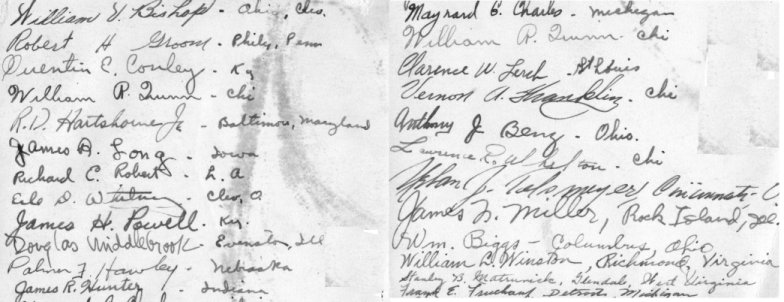 William V. Bishop - Ohio, Cleo.
Robert H Groom - Phily, Penn
Quentin C. Conley - Ky
William P. Quinn - Chi
R.D. Hartshorne Jr - Baltimore, Maryland
James A. Long - Iowa
Richard C. Robert - L.A
D. - Cleo, O
James H. Powell - Ky.
Douglas Middlebrook - Evanston, Ill
Palmer J. Hawley - Nebraska
James R. Hunter - Indiana
Maynard C. Charles - Michegan
William P. Quinn - Chi
Clarence W. Lerch - St Louis
Vernon A. Franklin - Chi
Anthony J Beng - Ohio.
Lawrence R. - Chi
J. Cincinnati, O
James N. Miller, Rock Island, Ill.
Wm. Biggs - Columbus, Ohio
William C. Winston, Richmond, Virginia
Stanley B. Glendale, West Virginia
Frank E. Detroit, Michigan